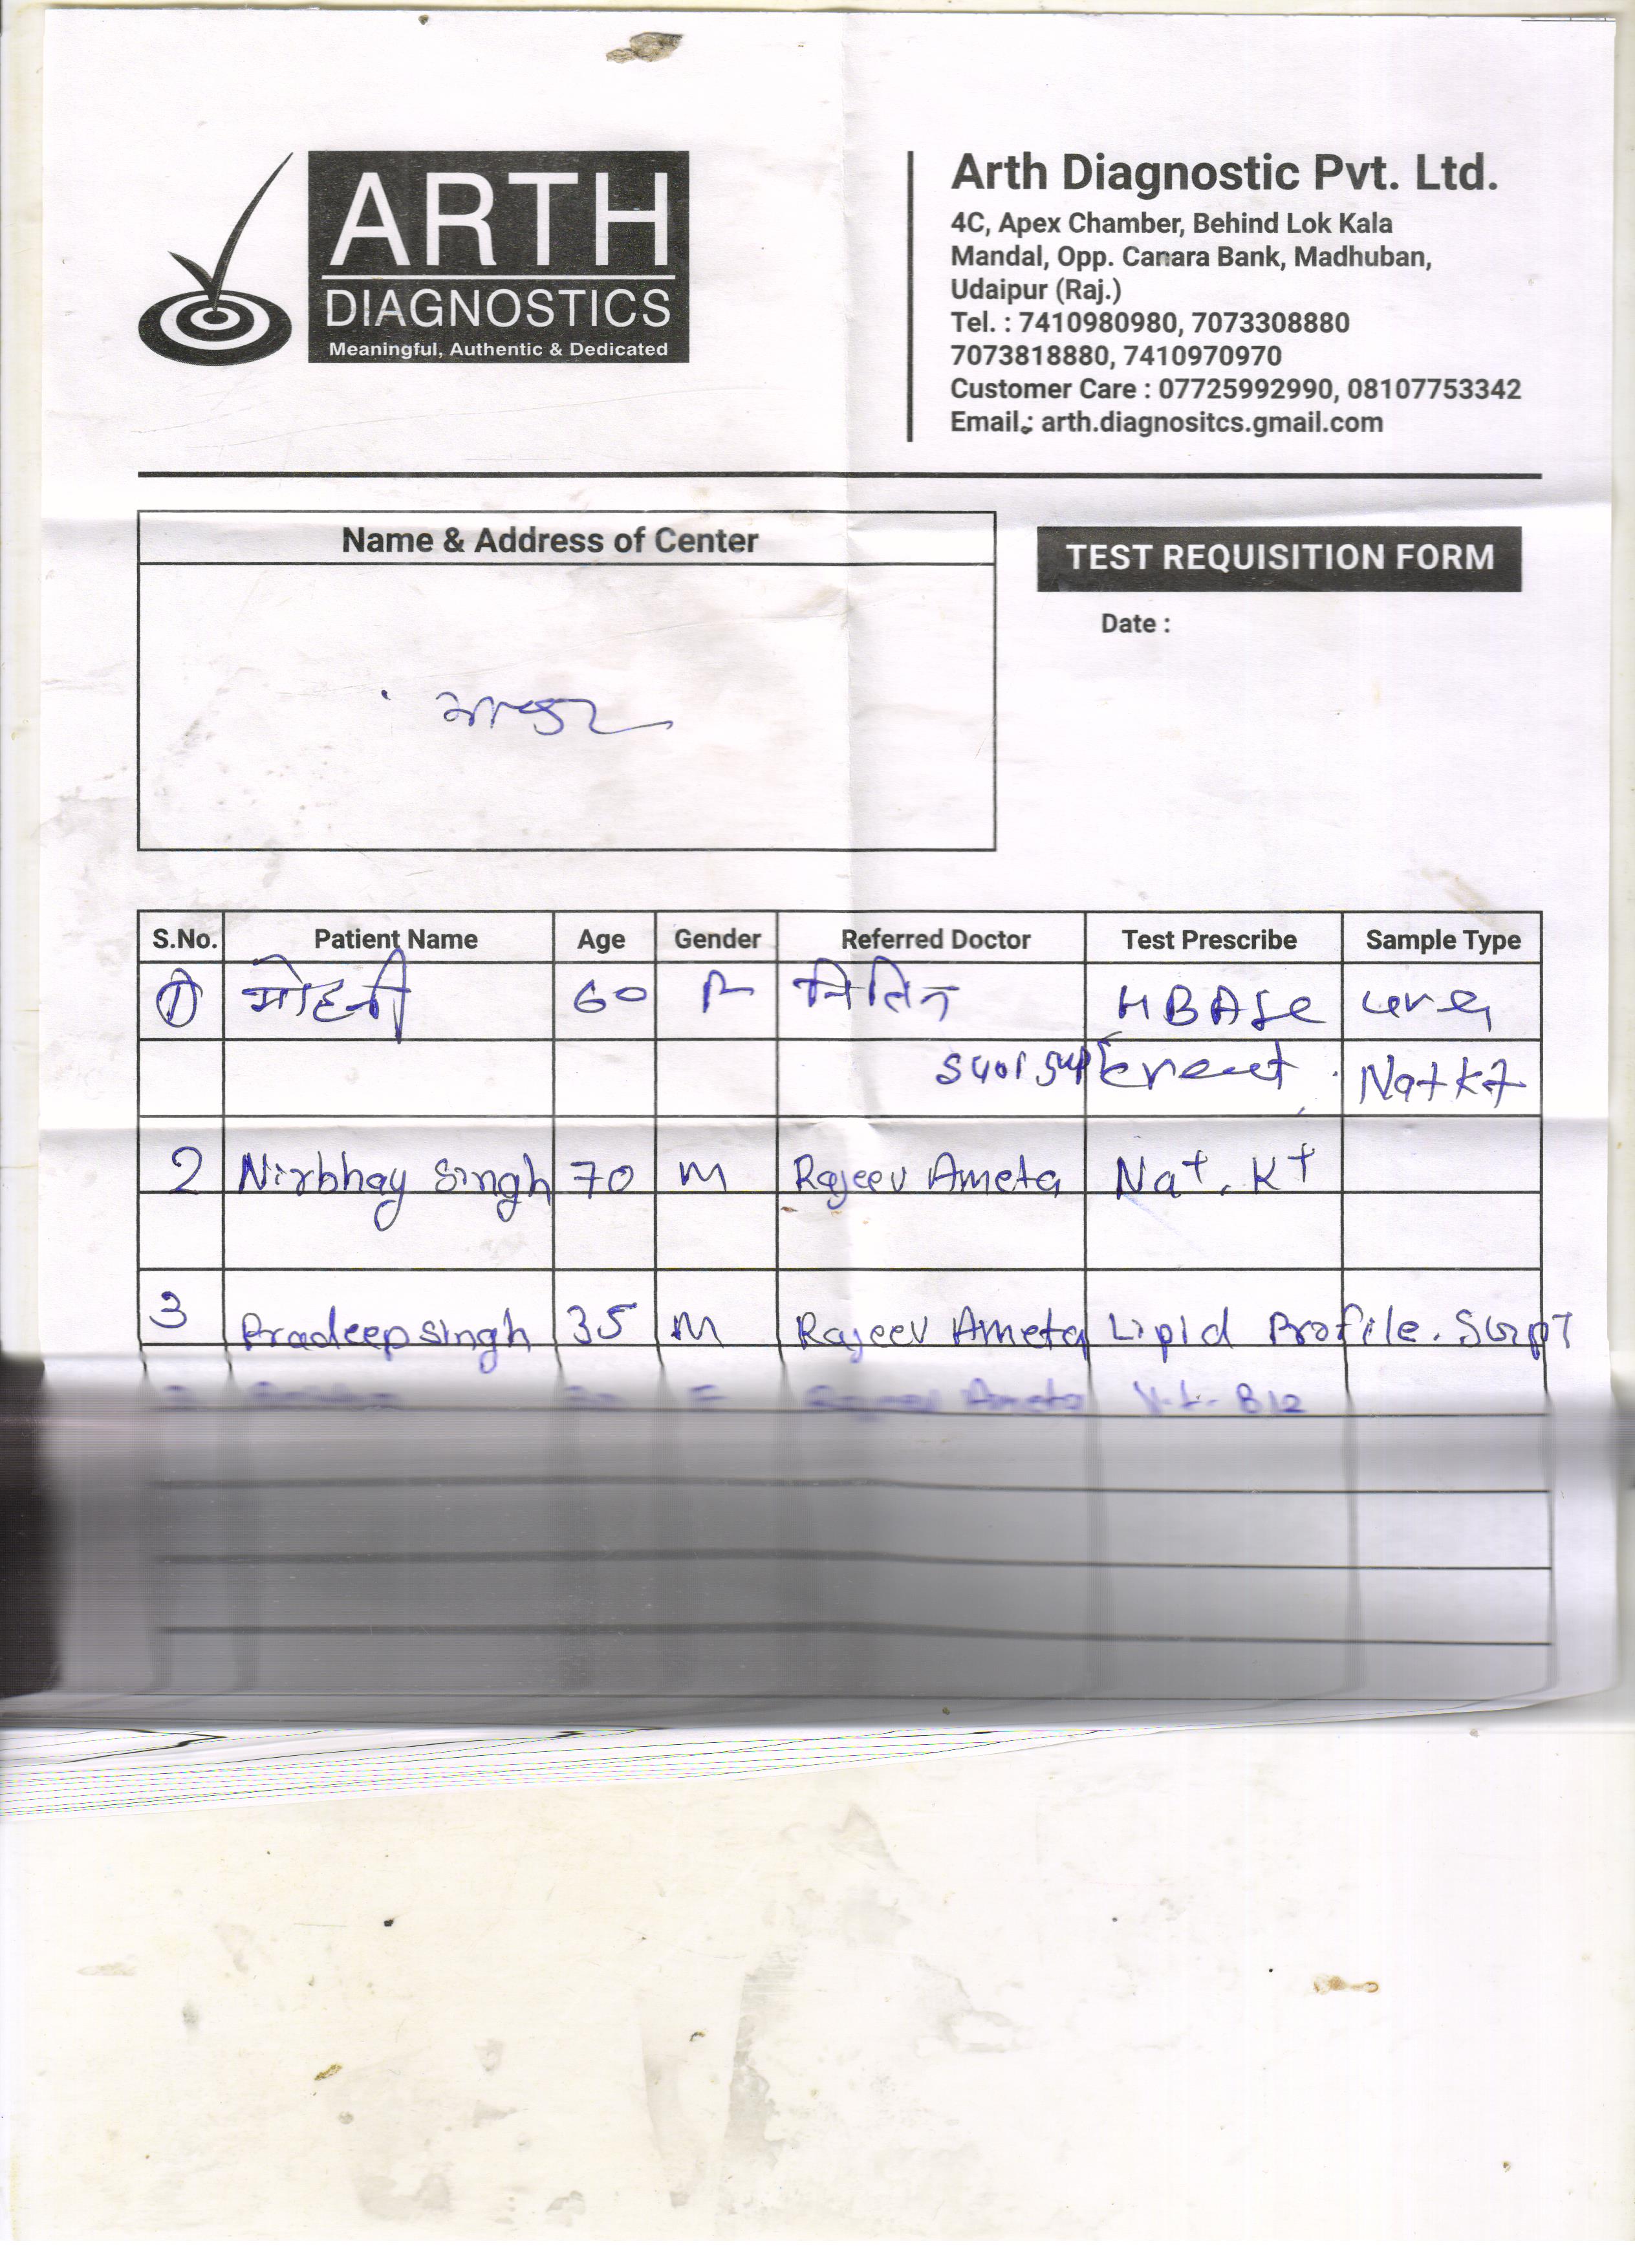 ARTH
DIAGNOSTICS
Meaningful, Authentic & Dedicated
Arth Diagnostic Pvt. Ltd.
4C, Apex Chamber, Behind Lok Kala
Mandal, Opp. Canara Bank, Madhuban,
Udaipur (Raj.)
Tel. : 7410980980, 7073308880
7073818880, 7410970970
Customer Care : 07725992990, 08107753342
Email : arth.diagnositcs.gmail.com
Name & Address of Center
TEST REQUISITION FORM
Date :
S.No. Patient Name Age Gender Referred Doctor Test Prescribe Sample Type
1 मोहनी 60 F नितिन
Na+ K+
2 Nirbhay Singh 70 M Rajeev Ameta Na+. K+
3 Pradeep singh 35 M Rajeev Ameta Lipid Profile. SGPT
Rajeev Ameta Vit. B12